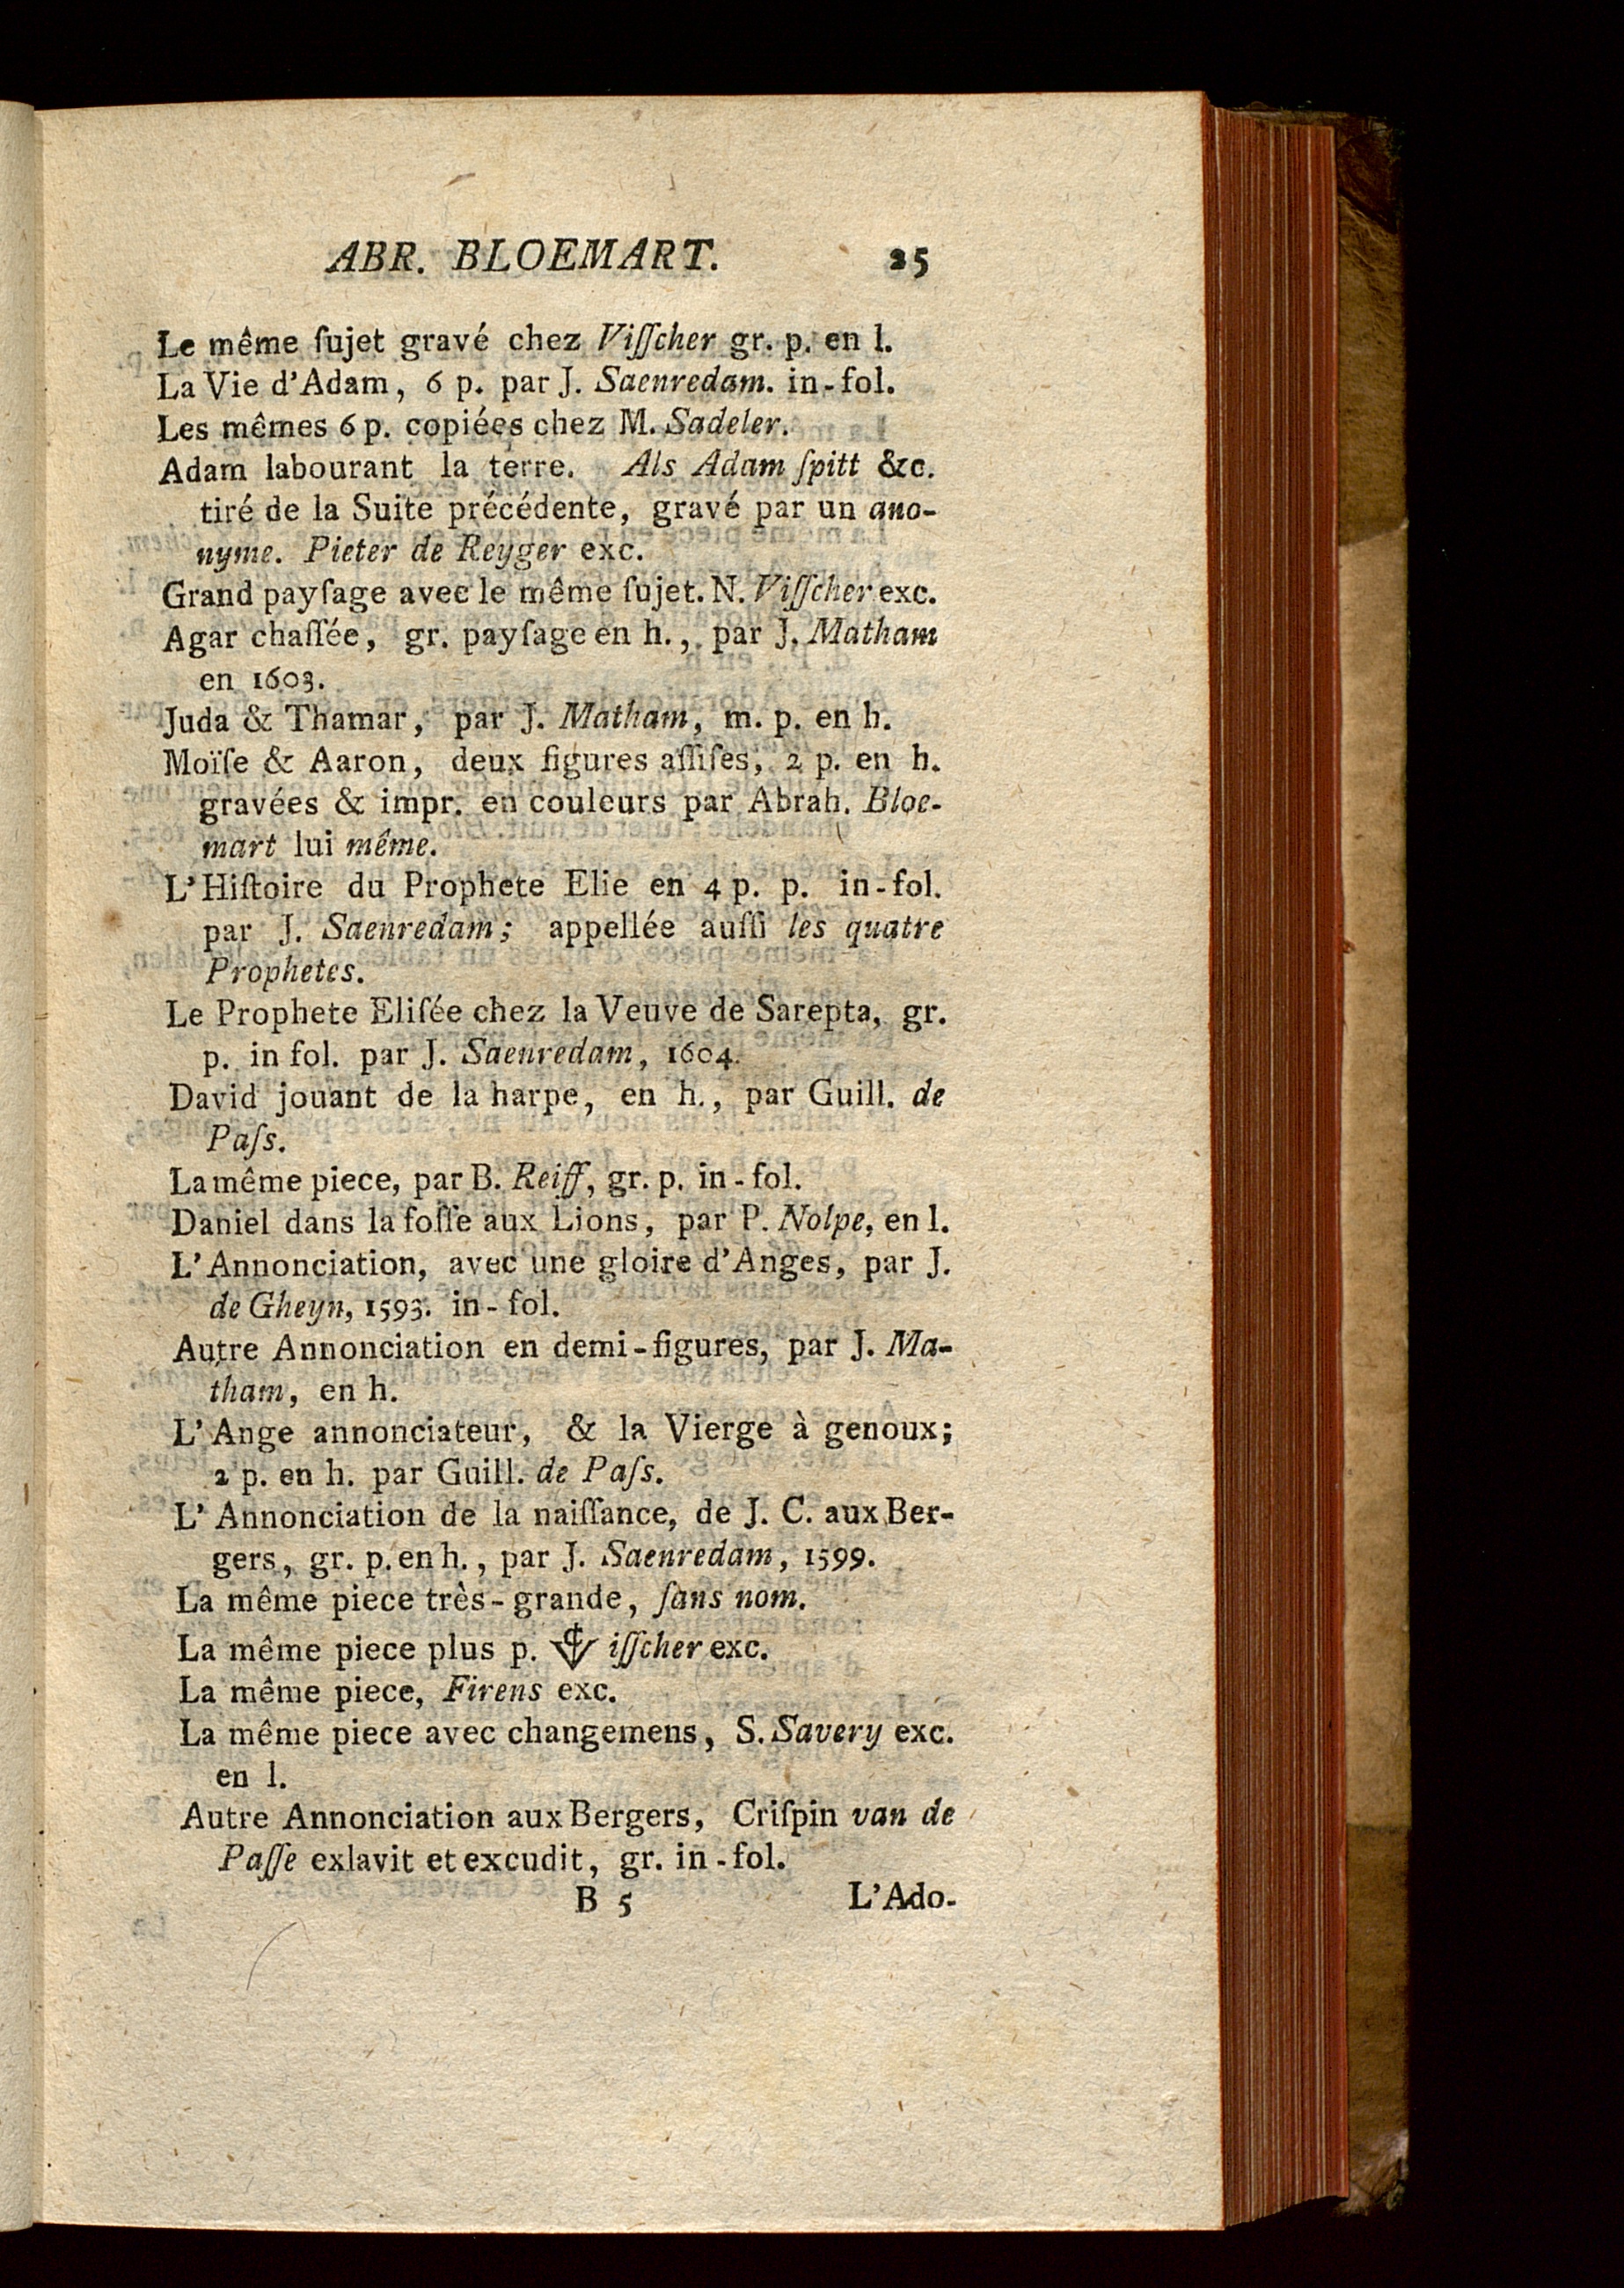 ABR. BLOEMART. 25
Le même ſujet gravé chez Viſſcher gr. p. en l.
La Vie d'Adam, 6 p. par J. Saenredam. in-fol.
Les mêmes 6 p. copiées chez M. Sadeler.
Adam labourant la terre. Als Adam ſpitt &c.
tiré de la Suite précédente, gravé par un ano-
nyme. Pieter de Reyger exc.
Grand payſage avec le même ſujet. N. Viſſcher exc.
Agar chaſſée, gr. payſage en h., par J. Matham
en 1603.
Juda & Thamar, par J. Matham, m. p. en h.
Moïſe & Aaron, deux figures aſſiſes, 2 p. en h.
gravées & impr. en couleurs par Abrah. Bloe-
mart lui même.
L'Hiſtoire du Prophete Elie en 4 p. p. in-fol.
par J. Saenredam; appellée auſſi les quatre
Prophetes.
Le Prophete Eliſée chez la Veuve de Sarepta, gr.
p. in fol. par J. Saenredam, 1604.
David jouant de la harpe, en h., par Guill. de
Paſs.
La même piece, par B. Reiff, gr. p. in-fol.
Daniel dans la foſſe aux Lions, par P. Nolpe, en l.
L'Annonciation, avec une gloire d'Anges, par J.
de Gheyn, 1593. in-fol.
Autre Annonciation en demi-figures, par J. Ma-
tham, en h.
L'Ange annonciateur, & la Vierge à genoux;
2 p. en h. par Guill. de Paſs.
L'Annonciation de la naiſſance, de J. C. aux Ber-
gers, gr. p. en h., par J. Saenredam, 1599.
La même piece très-grande, ſans nom.
La même piece plus p. iſſcher exc.
La même piece, Firens exc.
La même piece avec changemens, S. Savery exc.
en l.
Autre Annonciation aux Bergers, Criſpin van de
Paſſe exlavit et excudit, gr. in-fol.
B 5 L'Ado-